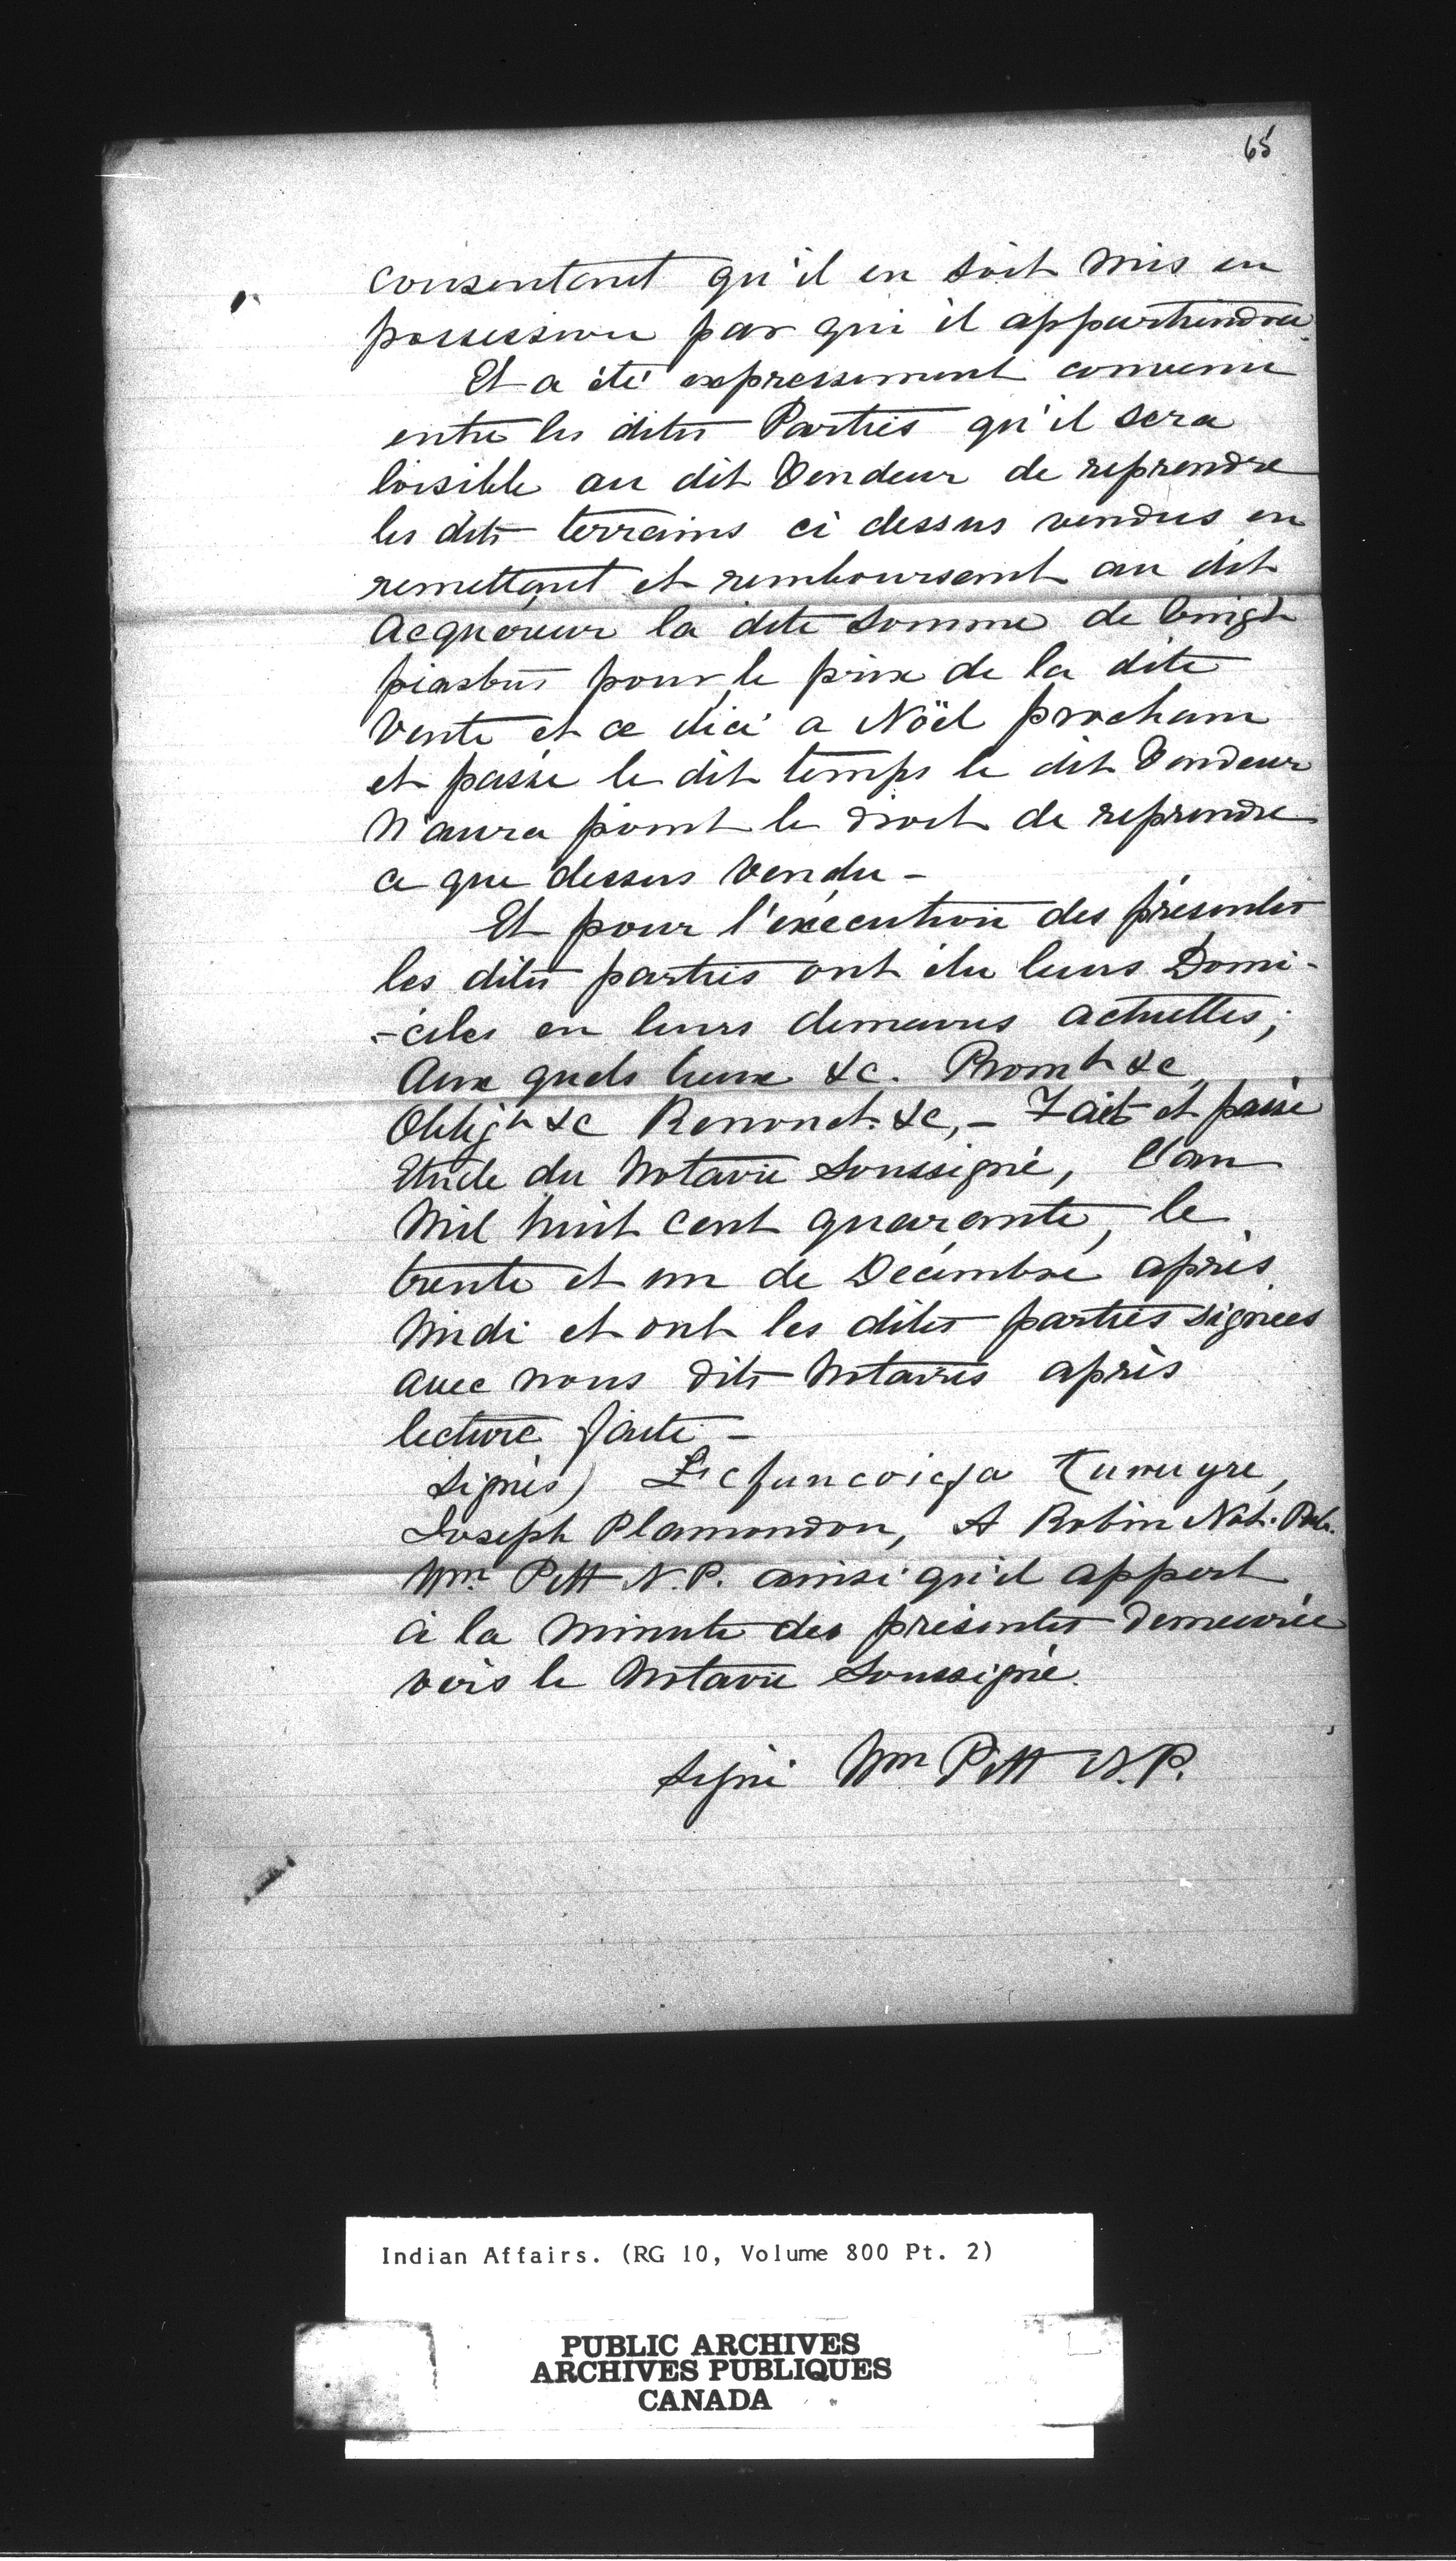 65
consentant qu'il en soit mis en
possession par qui il appartiendra.
Et a été expressement convenu
entre les dites Parties qu'il sera
loisible au dit Vendeur de reprendre
les dits terrains ci dessus vendus en
remettant et remboursant au dit
Acquereur la dite somme de vingt
piastres pour le prix de la dite
Vente et ce dici a Noël prochain
et passé le dit temps le dit Vendeur
N'aura point le droit de reprendre
ce que dessus vendu -
Et pour l'exécution des présentes
les dites parties ont élu leurs Domi-
-ciles en leurs demeures actuelles;
Aux quels lieux &c. Promt &c
Obligt &c Renonct. &c, - Fait et passé
Etude du Notaire Soussigné, l'an
Mil huit cent quarante, le
trente et un de Décembre après
Midi et ont les dites parties signées
avec nous dits Notaires après
lecture faite -
Signés)
Joseph Plamondon, A Robin Not. Pub.
Wm. Pitt N.P. ainsi qu'il appert
à la Minute des présentes demeurée
vers le Notaire Soussigné.
Signé Wm Pitt N.P.
Indian Affairs. (RG 10, Volume 800 Pt. 2)
PUBLIC ARCHIVES
ARCHIVES PUBLIQUES
CANADA